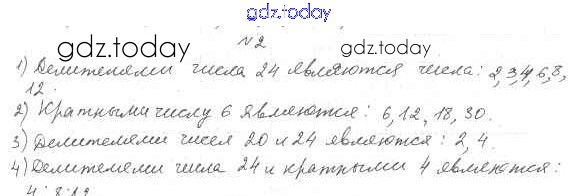 gdz.today
№2
gdz.today gdz.today
1) Делителями числа 24 являются числа: 2,3,4,6,8,
12.
2) Кратными числу 6 являются: 6,12,18,30.
3) Делителями чисел 20 и 24 являются: 2,4.
4) Делителями числа 24 и кратными 4 являются:
4; 8; 12